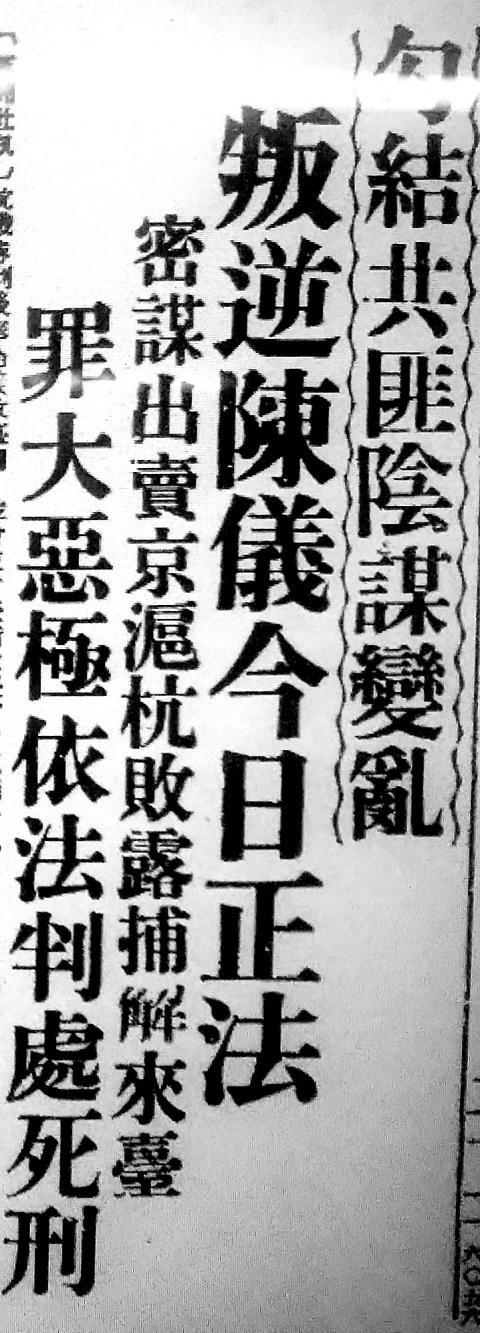 勾結共匪陰謀變亂
叛逆陳儀今日正法
密謀出賣京滬杭敗露捕解來臺
罪大惡極依法判處死刑